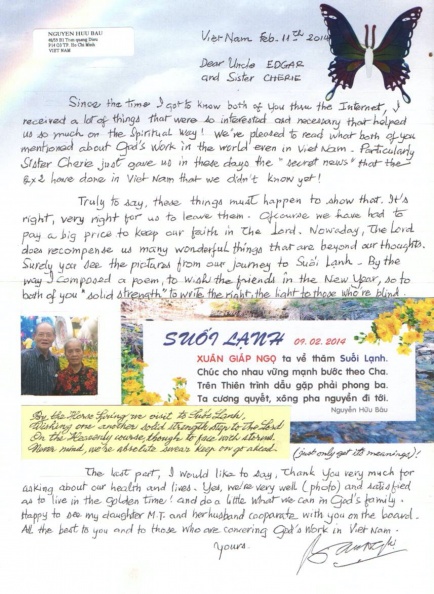 NGUYEN HUU BAU
VIET NAM
Viet Nam Feb. 11th 2014
Dear Uncle EDGAR
and Sister CHERIE
Since the time I got to know both of you thru the Internet, I
received a lot of things that were so interested and necessary that helped
us so much on the Spiritual Way! We've pleased to read what both of you
mentioned about God's Work in the world even in Viet Nam. Particularly
Sister Cherie just gave us in these days the "secret news" that the
2x2 have done in Viet Nam that we didn't know yet!
Truly to say, these things must happen to show that. It's
right, very right for us to leave them. Ofcourse we have had to
pay a big price to keep our faith in The Lord. Nowaday, The Lord
does recompense us many wonderful things that are beyond our thoughts.
Surely you see the pictures from our journey to Suối Lạnh. By the
way I composed a poem, to wish the friends in the New Year, so to
both of you "solid strength" to write the right, the light to those who're blind.
SUỐI LẠNH 09.02.2014
XUÂN GIÁP NGỌ ta về thăm Suối Lạnh.
Chúc cho nhau vững mạnh bước theo Cha.
Trên Thiên trình dẫu gặp phải phong ba.
Ta cương quyết, xông pha nguyền đi tới.
Nguyễn Hữu Bàu
By the Horse Spring we visit to Suối Lạnh,
Wishing one another solid strength step to The Lord
On the Heavenly course, though to face with storms.
Never mind, we're absolute swear keep on go ahead.
(just only get its meanings)!
The last part, I would like to say, Thank you very much for
asking about our health and lives. Yes, we're very well (photo) and satisfied
as to live in the Golden time! and do a little what we can in God's family.
Happy to see my daughter M.T. and her husband cooparate with you on the board.
All the best to you and to those who are concerning God's Work in Viet Nam.
Yours.